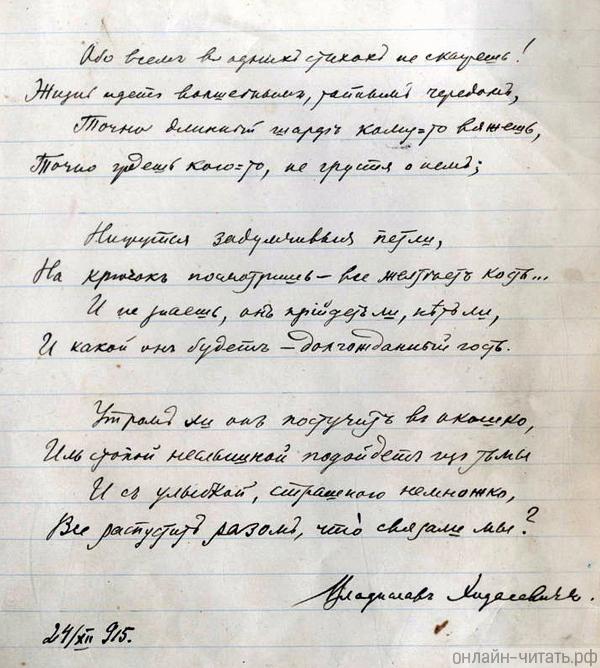 Обо всемъ въ однихъ стихахъ не скажешь!
Жизнь идетъ волшебнымъ, тайнымъ чередомъ,
Точно длинный шарфъ кому=то вяжешь,
Точно ждешь кого=то, не грустя о немъ;
Нижутся задумчивыя петли,
На крючокъ посмотришь – все желтѣетъ кость...
И не знаешь, онъ прійдетъ ли, нѣтъ ли,
И какой онъ будетъ – долгожданный гость.
Утромъ ли онъ постучитъ въ окошко,
Иль стопой неслышной подойдетъ изъ тьмы
И съ улыбкой, страшною немножко,
Все распуститъ разомъ, что связали мы?
Владиславъ Ходасевичъ.
24/XII 915.
онлайн-читать.рф